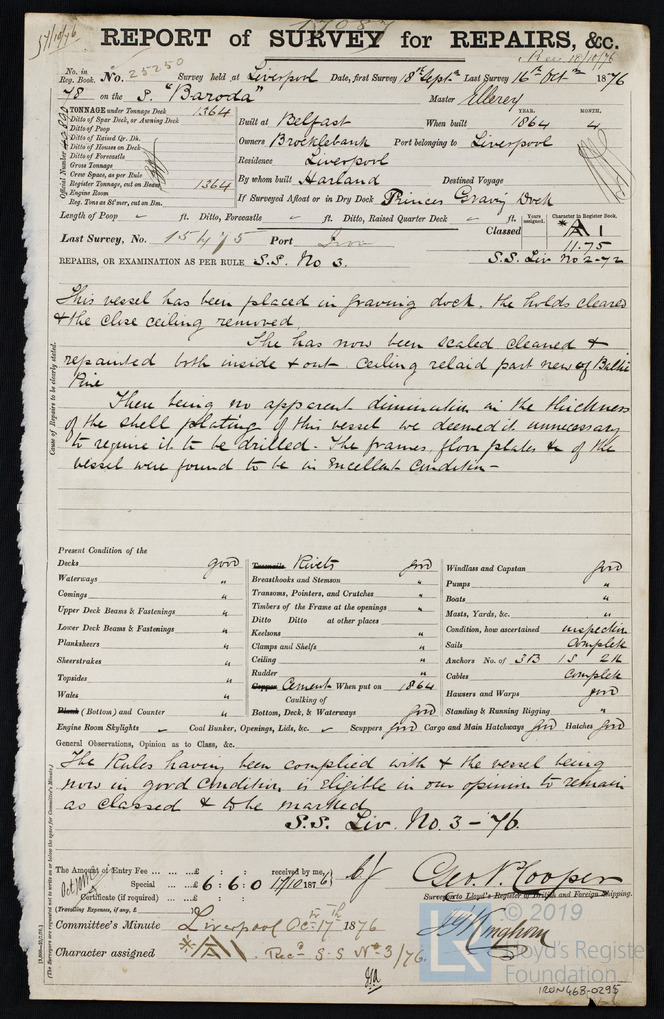 57/10/76
17087
REPORT of SURVEY for REPAIRS, &c.
Rec 18/10/76
No. in Reg. Book. No. 25250 Survey held at Liverpool Date, first Survey 18th Septr Last Survey 16th Octr 1876
78 on the S. "Baroda" Master Ellerey
TONNAGE under Tonnage Deck 1364
Ditto of Spar Deck, or Awning Deck
Ditto of Poop
Ditto of Raised Qr. Dk.
Ditto of Houses on Deck
Ditto of Forecastle
Gross Tonnage
Crew Space, as per Rule
Register Tonnage, cut on Beam 1364
Engine Room
Reg. Tons as St'mer, cut on Bm.
Official Number
Built at Belfast When built YEAR. 1864 MONTH. 4
Owners Brocklebank Port belonging to Liverpool
Residence Liverpool
By whom built Harland Destined Voyage
If Surveyed Afloat or in Dry Dock Princes Graving Dock
Length of Poop " ft. Ditto, Forecastle " ft. Ditto, Raised Quarter Deck " ft.
Classed Years assigned. Character in Register Book.
*A1
11.75
Last Survey, No. 15475 Port Iron
REPAIRS, OR EXAMINATION AS PER RULE S.S. No 3. S.S. Liv No 2-72
This vessel has been placed in graving dock, the holds cleared
& the close ceiling removed
She has now been scaled cleaned &
repainted both inside & out ceiling relaid part new of Baltic
Pine
There being no apparent diminution in the thickness
of the shell plating of this vessel we deemed it unnecessary
to require it to be drilled - The frames, floor plates &c of the
vessel were found to be in Excellent Condition -
Cause of Repairs to be clearly stated.
Present Condition of the
Decks good
Waterways "
Comings "
Upper Deck Beams & Fastenings "
Lower Deck Beams & Fastenings "
Planksheers "
Sheerstrakes "
Topsides "
Wales "
Plank (Bottom) and Counter "
Treenails Rivets good
Breasthooks and Stemson "
Transoms, Pointers, and Crutches "
Timbers of the Frame at the openings "
Ditto Ditto at other places "
Keelsons "
Clamps and Shelfs "
Ceiling "
Rudder "
Copper Cement When put on 1864
Caulking of
Bottom, Deck, & Waterways good
Windlass and Capstan good
Pumps "
Boats "
Masts, Yards, &c. "
Condition, how ascertained inspection
Sails Complete
Anchors No. of 3B 1S 2K
Cables Complete
Hawsers and Warps good
Standing & Running Rigging "
Engine Room Skylights Coal Bunker, Openings, Lids, &c. Scuppers good Cargo and Main Hatchways good Hatches good
General Observations, Opinion as to Class, &c.
The Rules having been complied with & the vessel being
now in good condition is eligible in our opinion to remain
as classed & to be marked
S.S. Liv. No. 3 - 76.
The Amount of Entry Fee ... £ received by me,
Special ... £ 6:6:0 17/10/1876
Certificate (if required) ... £
(Travelling Expenses, if any, £ )
Geo. P. Cooper
Surveyor to Lloyd's Register of British and Foreign Shipping.
Committee's Minute Liverpool Octr 17th 1876
Character assigned *A1 Recd S.S No 3/76.
(The Surveyors are requested not to write on or below the space for Committee's Minute.)
© 2019
Lloyd's Register
Foundation
LR
IRON468-0295